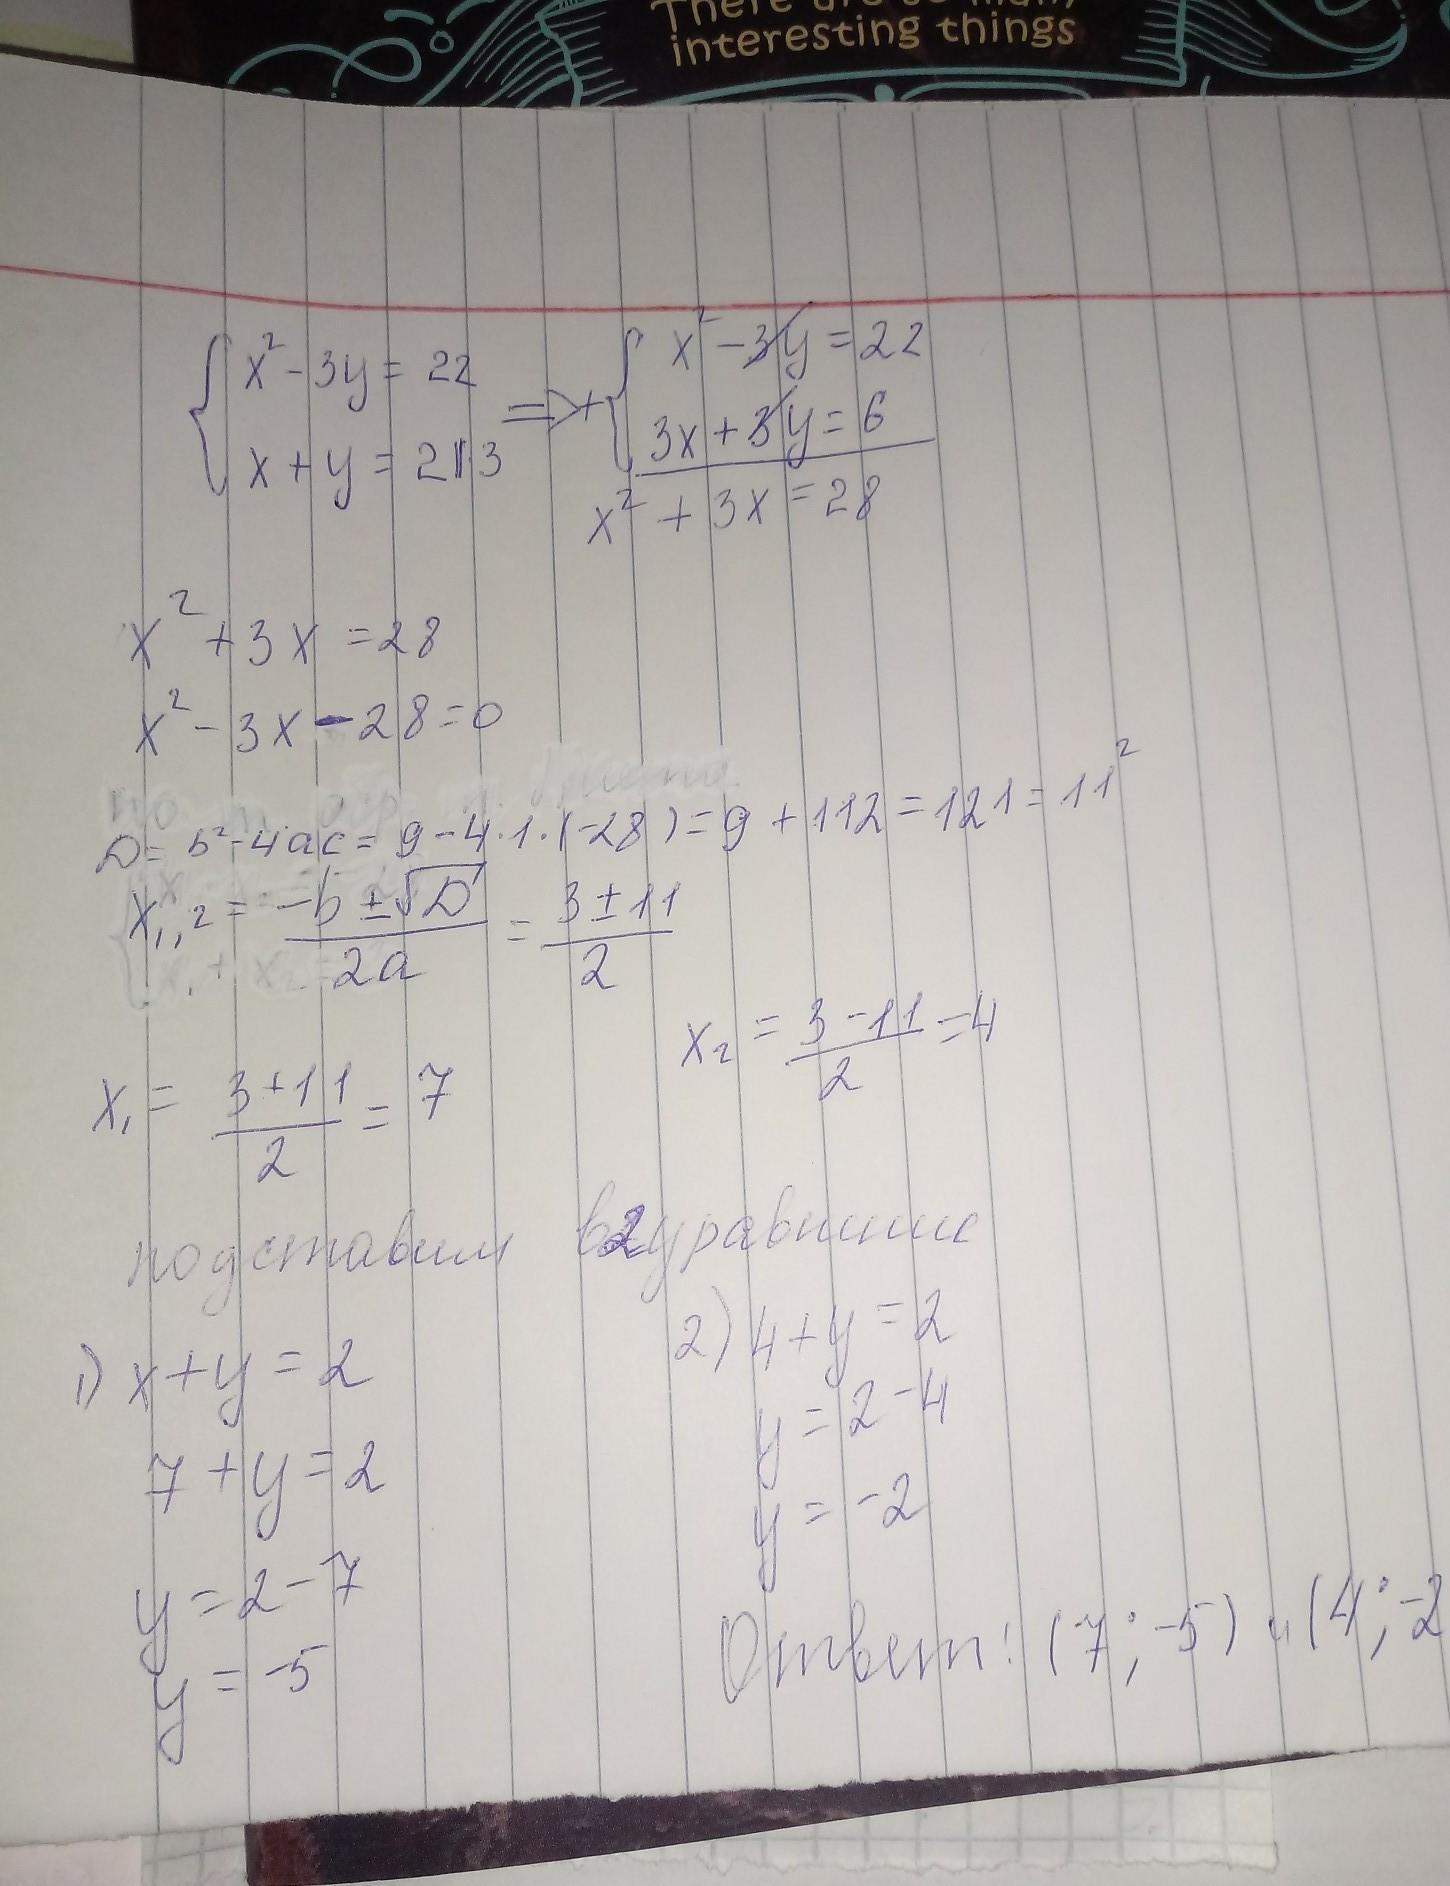 There are so many
interesting things
x² - 3y = 22
x + y = 2 |·3
=> + x² - 3y = 22
3x + 3y = 6
x² + 3x = 28
x² + 3x = 28
x² - 3x - 28 = 0
D = b² - 4ac = 9 - 4·1·(-28) = 9 + 112 = 121 = 11²
x₁,₂ = (-b ± √D)/2a = (3 ± 11)/2
x₂ = (3 - 11)/2 = 4
x₁ = (3 + 11)/2 = 7
подставим в 2 уравнение
1) x + y = 2
2) 4 + y = 2
y = 2 - 4
7 + y = 2
y = -2
y = 2 - 7
Ответ: (7; -5) и (4; -2
y = -5